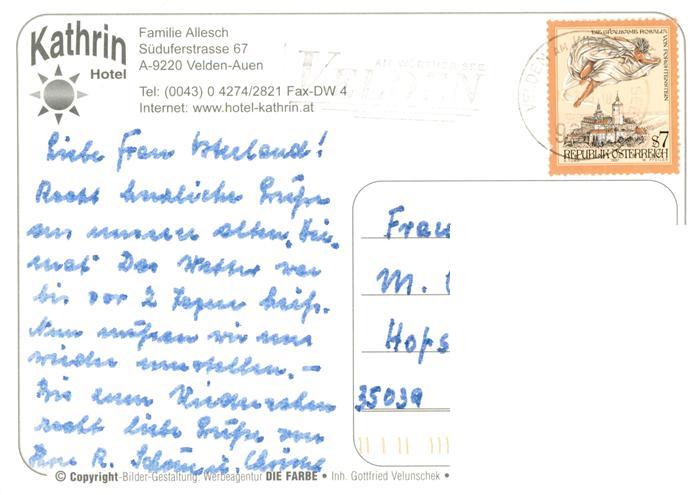 Kathrin
Hotel
Familie Allesch
Süduferstrasse 67
A-9220 Velden-Auen
Tel: (0043) 0 4274/2821 Fax-DW 4
Internet: www.hotel-kathrin.at
AM WÖRTHER SEE
VELDEN
DIE GRAUSAME ROSALIA
VON FORCHTENSTEIN
S7
REPUBLIK ÖSTERREICH
Liebe Frau
Recht herzliche Grüße
aus unserer alten „Hei-
mat" Das Wetter war
bis vor 2 Tagen heiß.
Nun müssen wir uns
wieder umstellen. –
Bis zum Wiedersehen
recht liebe Grüße von
Ihre R.
Frau
M.
Hops
35039
© Copyright-Bilder-Gestaltung: Werbeagentur DIE FARBE • Inh. Gottfried Velunschek •